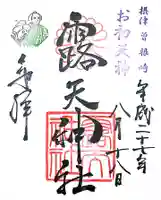 摂津 曽根崎
お初天神
平成二十六年
八月十八日
露天神社
奉拝